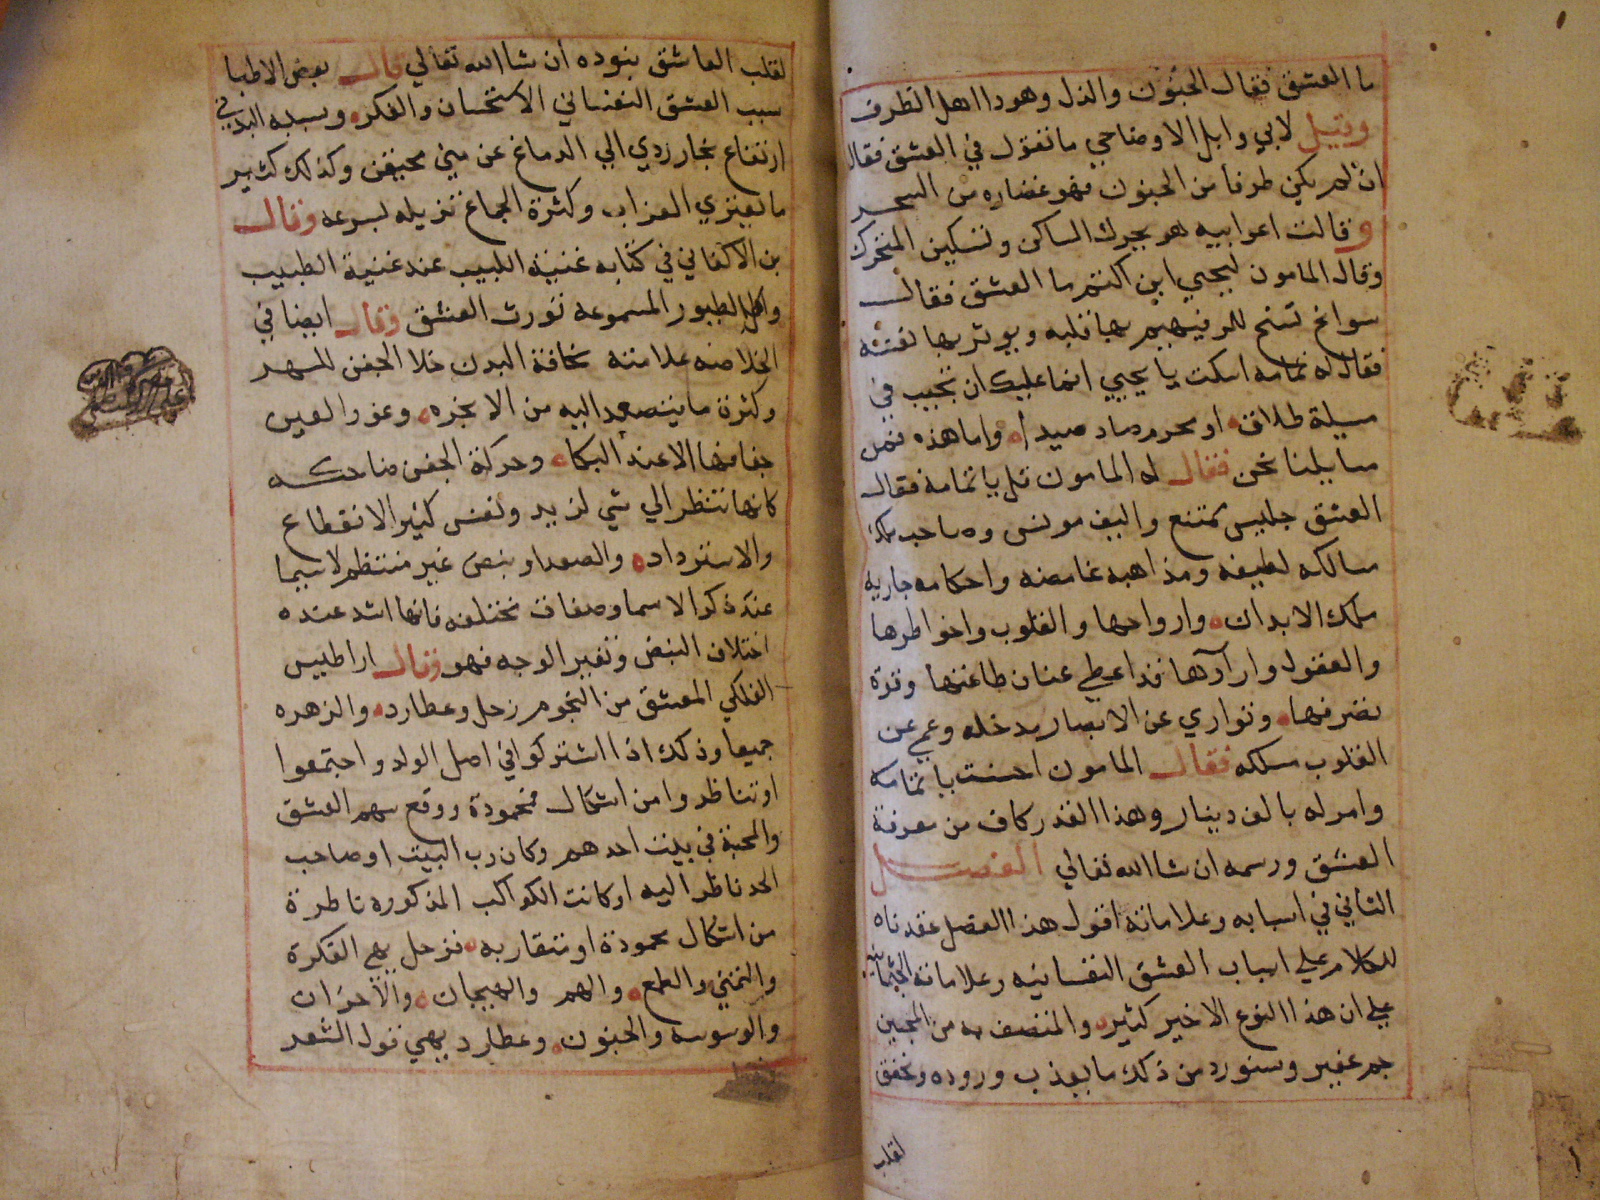 ما العشق فقال الجنون والذل وهو داا اهل الظرف
وقيل لابي وايل الاوضاحي ما تقول في العشق فقال
ان لم يكن طرفا من الجنون فهو عصاره من السحر
وقالت اعرابيه هو تحريك الساكن وتسكين المتحرك
وقال المامون ليحيي ابن اكثم ما العشق فقال
سوانح تسنح للمر فيهيم بها قلبه ويوثر بها نفسه
فقال له ثمامه اسكت يا يحيي انما عليك ان تجيب في
مسيلة طلاق او محرم صاد صيدا واما هذه فمن
مسايلنا نحن فقال له المامون قل يا ثمامه فقال
العشق جليس ممتع واليف مونس وصاحب ملك
مسالكه لطيفه ومذاهبه غامضه واحكامه جاريه
ملك الابدان وارواحها والقلوب وخواطرها
والعقول وارآآها قد اعطي عنان طاعتها وقوة
تصرفها وتواري عن الابصار مدخله وعمي عن
القلوب مسلكه فقال المامون احسنت يا ثمامه
وامر له بالف دينار وهذا القدر كاف من معرفة
العشق ورسمه ان شاالله تعالي الفصل
الثاني في اسبابه وعلاماته اقول هذا الفصل عقدناه
للكلام علي اسباب العشق النفسانيه وعلاماته الجثمانيه
علي ان هذا النوع الاخير كثير والمتصف به من المحبين
جم غفير وسنورد من ذلك ما يعذب وروده ويخفق
لقلب
لقلب العاشق بنوده ان شاالله تعالي قال بعض الاطبا
سبب العشق النفساني الاستحسان والفكر وسببه البدني
ارتفاع بخار ردي الي الدماغ عن مني محتقن وكذلك كثير
ما يعتري العزاب وكثرة الجماع تزيله بسرعه وقال
بن الاكفاني في كتابه غنية اللبيب عند غيبة الطبيب
واكل الطيور المسموعه تورث العشق وقال ايضا في
الخلاصه علامته نحافة البدن خلا الجفن للسهر
وكثرة ما يتصعد اليه من الابخره وغور العين
جفافها الا عند البكاء وحركة الجفن ضاحكه
كانها تنظر الي شي لذيد ونفس كثير الانقطاع
والاسترداد والصعدا ونبض غير منتظم لاسيما
عند ذكر الاسما وصفات مختلفه فانها اشد عنده
اختلاف النبض وتغير الوجه فهو وقال اراطيس
الفلكي المعشق من النجوم زحل وعطارد والزهره
جميعا وذلك اذا اشتركوا في اصل الولد واجتمعوا
او تناظروا من اشكال محمودة ووقع سهم العشق
والمحبة في بيت احدهم وكان رب البيت او صاحب
الحد ناظرا اليه او كانت الكواكب المذكوره ناظرة
من اشكال محمودة او متقاربه فزحل يهي الفكرة
والتمني والطمع والهم والهيجان والاحزان
والوسوسه والجنون وعطارد يهي قول الشعر